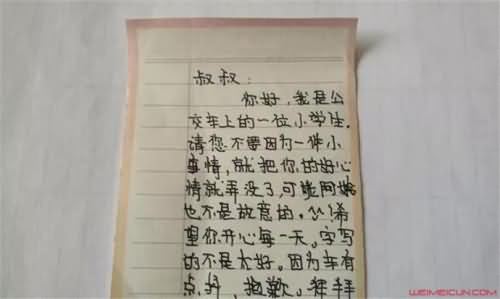 叔叔：
你好，我是公
交车上的一位小学生.
请您不要因为一件小
事情，就把你的好心
情就弄没了，可能阿姨
也不是故意的。
望你开心每一天。字写
的不是太好。因为车有
点抖，抱歉。拜拜
WEIMEICUN.COM